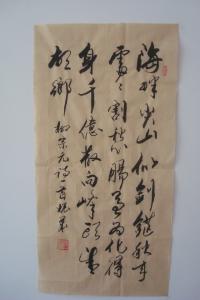 海畔尖山似劍鋩秋来
處處割愁腸若為化得
身千億散向峰頭望
故鄉 柳宗元詩一首